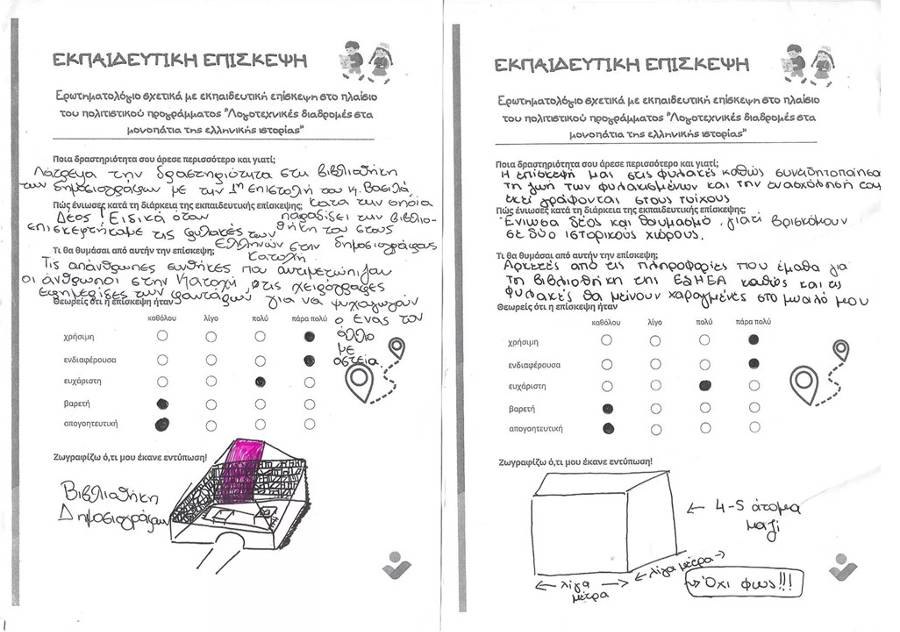 ΕΚΠΑΙΔΕΥΤΙΚΗ ΕΠΙΣΚΕΨΗ
Ερωτηματολόγιο σχετικά με εκπαιδευτική επίσκεψη στο πλαίσιο
του πολιτιστικού προγράμματος "Λογοτεχνικές διαδρομές στα
μονοπάτια της ελληνικής ιστορίας"
Ποια δραστηριότητα σου άρεσε περισσότερο και γιατί;
Λάτρεψα την δραστηριότητα στη βιβλιοθήκη
των δημοσιογράφων με την 1η επιστολή του κ. Βασιλά
κατά την οποία
Πώς ένιωσες κατά τη διάρκεια της εκπαιδευτικής επίσκεψης;
παραδίδει την βιβλιο-
θήκη του στους
δημοσιογράφους
Δέος! Ειδικά όταν
επισκεφτήκαμε τις φυλακές των
Ελλήνων στην
κατοχή.
Τι θα θυμάσαι από αυτήν την επίσκεψη;
Τις απάνθρωπες συνθήκες που αντιμετώπιζαν
οι άνθρωποι στην κατοχή, τις χειρόγραφες
εφημερίδες των φαντάρων για να ψυχαγωγούν
ο ένας τον
άλλο
με
αστεία
Θεωρείς ότι η επίσκεψη ήταν
καθόλου λίγο πολύ πάρα πολύ
χρήσιμη
ενδιαφέρουσα
ευχάριστη
βαρετή
απογοητευτική
Ζωγραφίζω ό,τι μου έκανε εντύπωση!
Βιβλιοθήκη
Δημοσιογράφων
ΕΚΠΑΙΔΕΥΤΙΚΗ ΕΠΙΣΚΕΨΗ
Ερωτηματολόγιο σχετικά με εκπαιδευτική επίσκεψη στο πλαίσιο
του πολιτιστικού προγράμματος "Λογοτεχνικές διαδρομές στα
μονοπάτια της ελληνικής ιστορίας"
Ποια δραστηριότητα σου άρεσε περισσότερο και γιατί;
Η επίσκεψή μας στις φυλακές καθώς συνειδητοποίησα
τη ζωή των φυλακισμένων και την ενασχόληση
εκεί γράφονται στους τοίχους
Πώς ένιωσες κατά τη διάρκεια της εκπαιδευτικής επίσκεψης;
Ένιωσα δέος και θαυμασμό, γιατί βρισκόμουν
σε δύο ιστορικούς χώρους.
Τι θα θυμάσαι από αυτήν την επίσκεψη;
Αρκετές από τις πληροφορίες που έμαθα για
τη βιβλιοθήκη της ΕΣΗΕΑ καθώς και τις
φυλακές θα μείνουν χαραγμένες στο μυαλό μου
Θεωρείς ότι η επίσκεψη ήταν
καθόλου λίγο πολύ πάρα πολύ
χρήσιμη
ενδιαφέρουσα
ευχάριστη
βαρετή
απογοητευτική
Ζωγραφίζω ό,τι μου έκανε εντύπωση!
← 4-5 άτομα
μαζί
λίγα μέτρα
λίγα
μέτρα
Όχι φως!!!